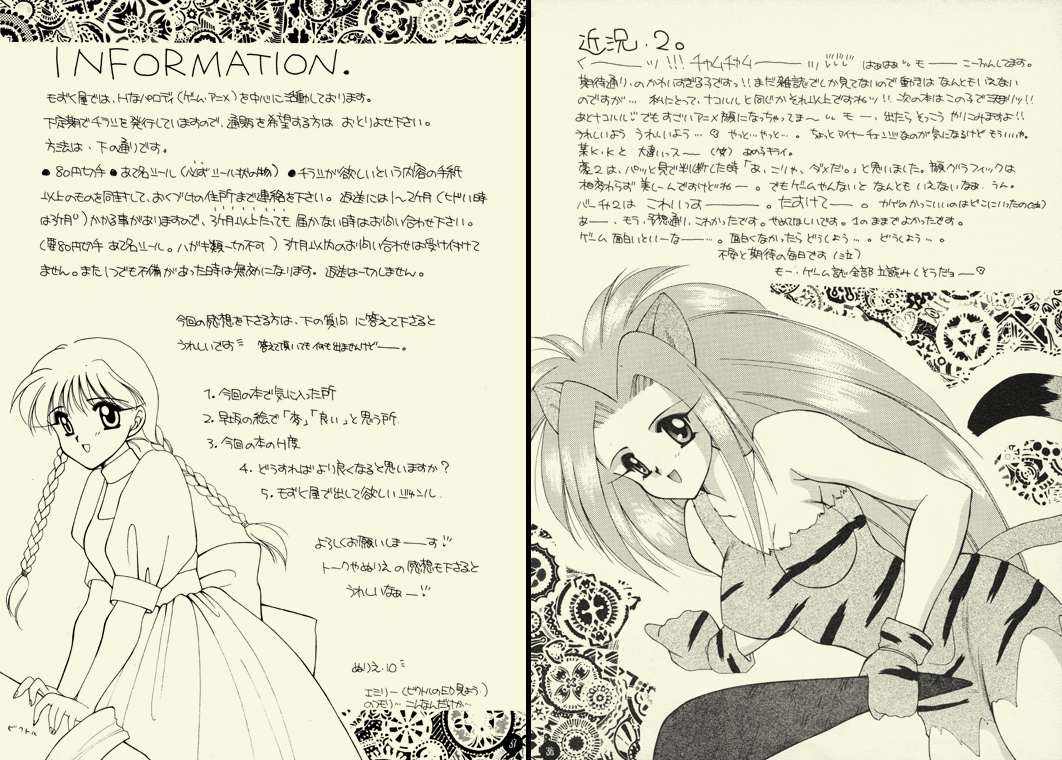 INFORMATION.
もずく屋では、Hなパロディ(ゲーム・アニメ)を中心に活動しております。
不定期でチラシを発行していますので、通販を希望する方は おとりよせ下さい。
方法は、下の通りです。
● 80円切手 ● あて名シール(必ずシール状の物) ● チラシが欲しいという内容の手紙
以上のものを同封して、おくづけの住所まで連絡を下さい。返送には1〜2か月(ヒドい時
は3か月)かかる事がありますので、3か月以上たっても 届かない時はお問い合わせ下さい。
(要80円切手 あて名シール。ハガキ類一切不可) 3か月以内のお問い合わせは受け付けて
ません。また いつでも不備があった時は無効になります。返送は一切しません。
今回の感想を下さる方は、下の質問に答えて下さると
うれしいです 答えて頂いても何も出ませんけど——。
1. 今回の本で気に入った所
2. 早坂の絵で「変」「良い」と思う所
3. 今回の本のH度
4. どうすればより良くなると思いますか?
5. もずく屋で出して欲しいジャンル.
よろしくお願いしま——す!!
トークやぬりえの感想も下さると
うれしいなぁ—!!
ぬりえ・10
エミリー(ビクトルのED見よう♪)
のつもり… こんなんだけか…
ビクトル
37
近況・2。
く———ッ!!! チャムチャム———ッ!!!! はぁはぁ モ— こーふんしてます。
期待通りのかわいすぎる子ですっ!! まだ雑誌でしか見てないので動きは なんともいえない
のですが… 私にとって、ナコルルと同じかそれ以上ですねッ!! 次の本はこの子で決まりッ!!
あとナコルル でもすごいアニメ顔になっちゃってま〜 モ—、出たら そっこう やりこみますよ!!
うれしいよう うれしいよう…♡ やっと…やっと…。 ちょっとマイナーチェンジなのが気になるけど もういいや。
某K・Kと 大違いっス—(笑) あれもキライ。
変2は、パッと見で判断した時「あ、こりゃ、ダメだ。」と思いました。顔グラフィックは
相変わらず 美し〜んですけどね—。でもゲームやんないと なんとも いえないなぁ。うん。
バーチ2は こわいっス———。たすけて——。 カゲのかっこいいのはどこにいったの(泣)
あ—、もう、予想通り、こわかったです。やめてほしいです。1のままでよかったです。
ゲーム 面白いといーな——…。面白くなかったら どうしよう…。どうしよう…。
不安と期待の毎日です(泣)
モー・ゲーム誌 全部 立読みしそうだョ—♡
36